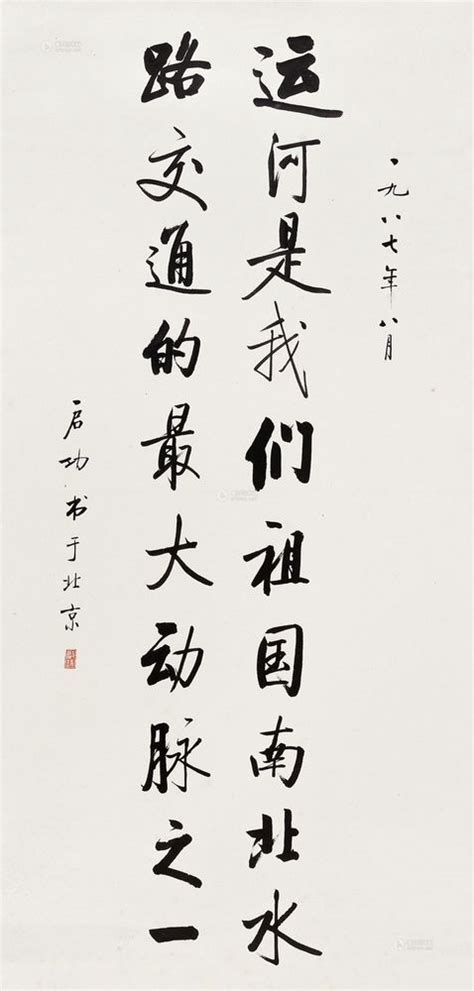 一九八七年八月
运河是我们祖国南北水
路交通的最大动脉之一
启功书于北京